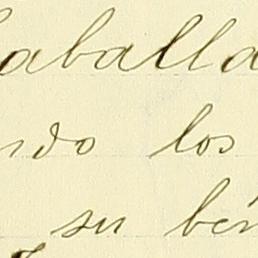 Caballa
ndo los
su bén